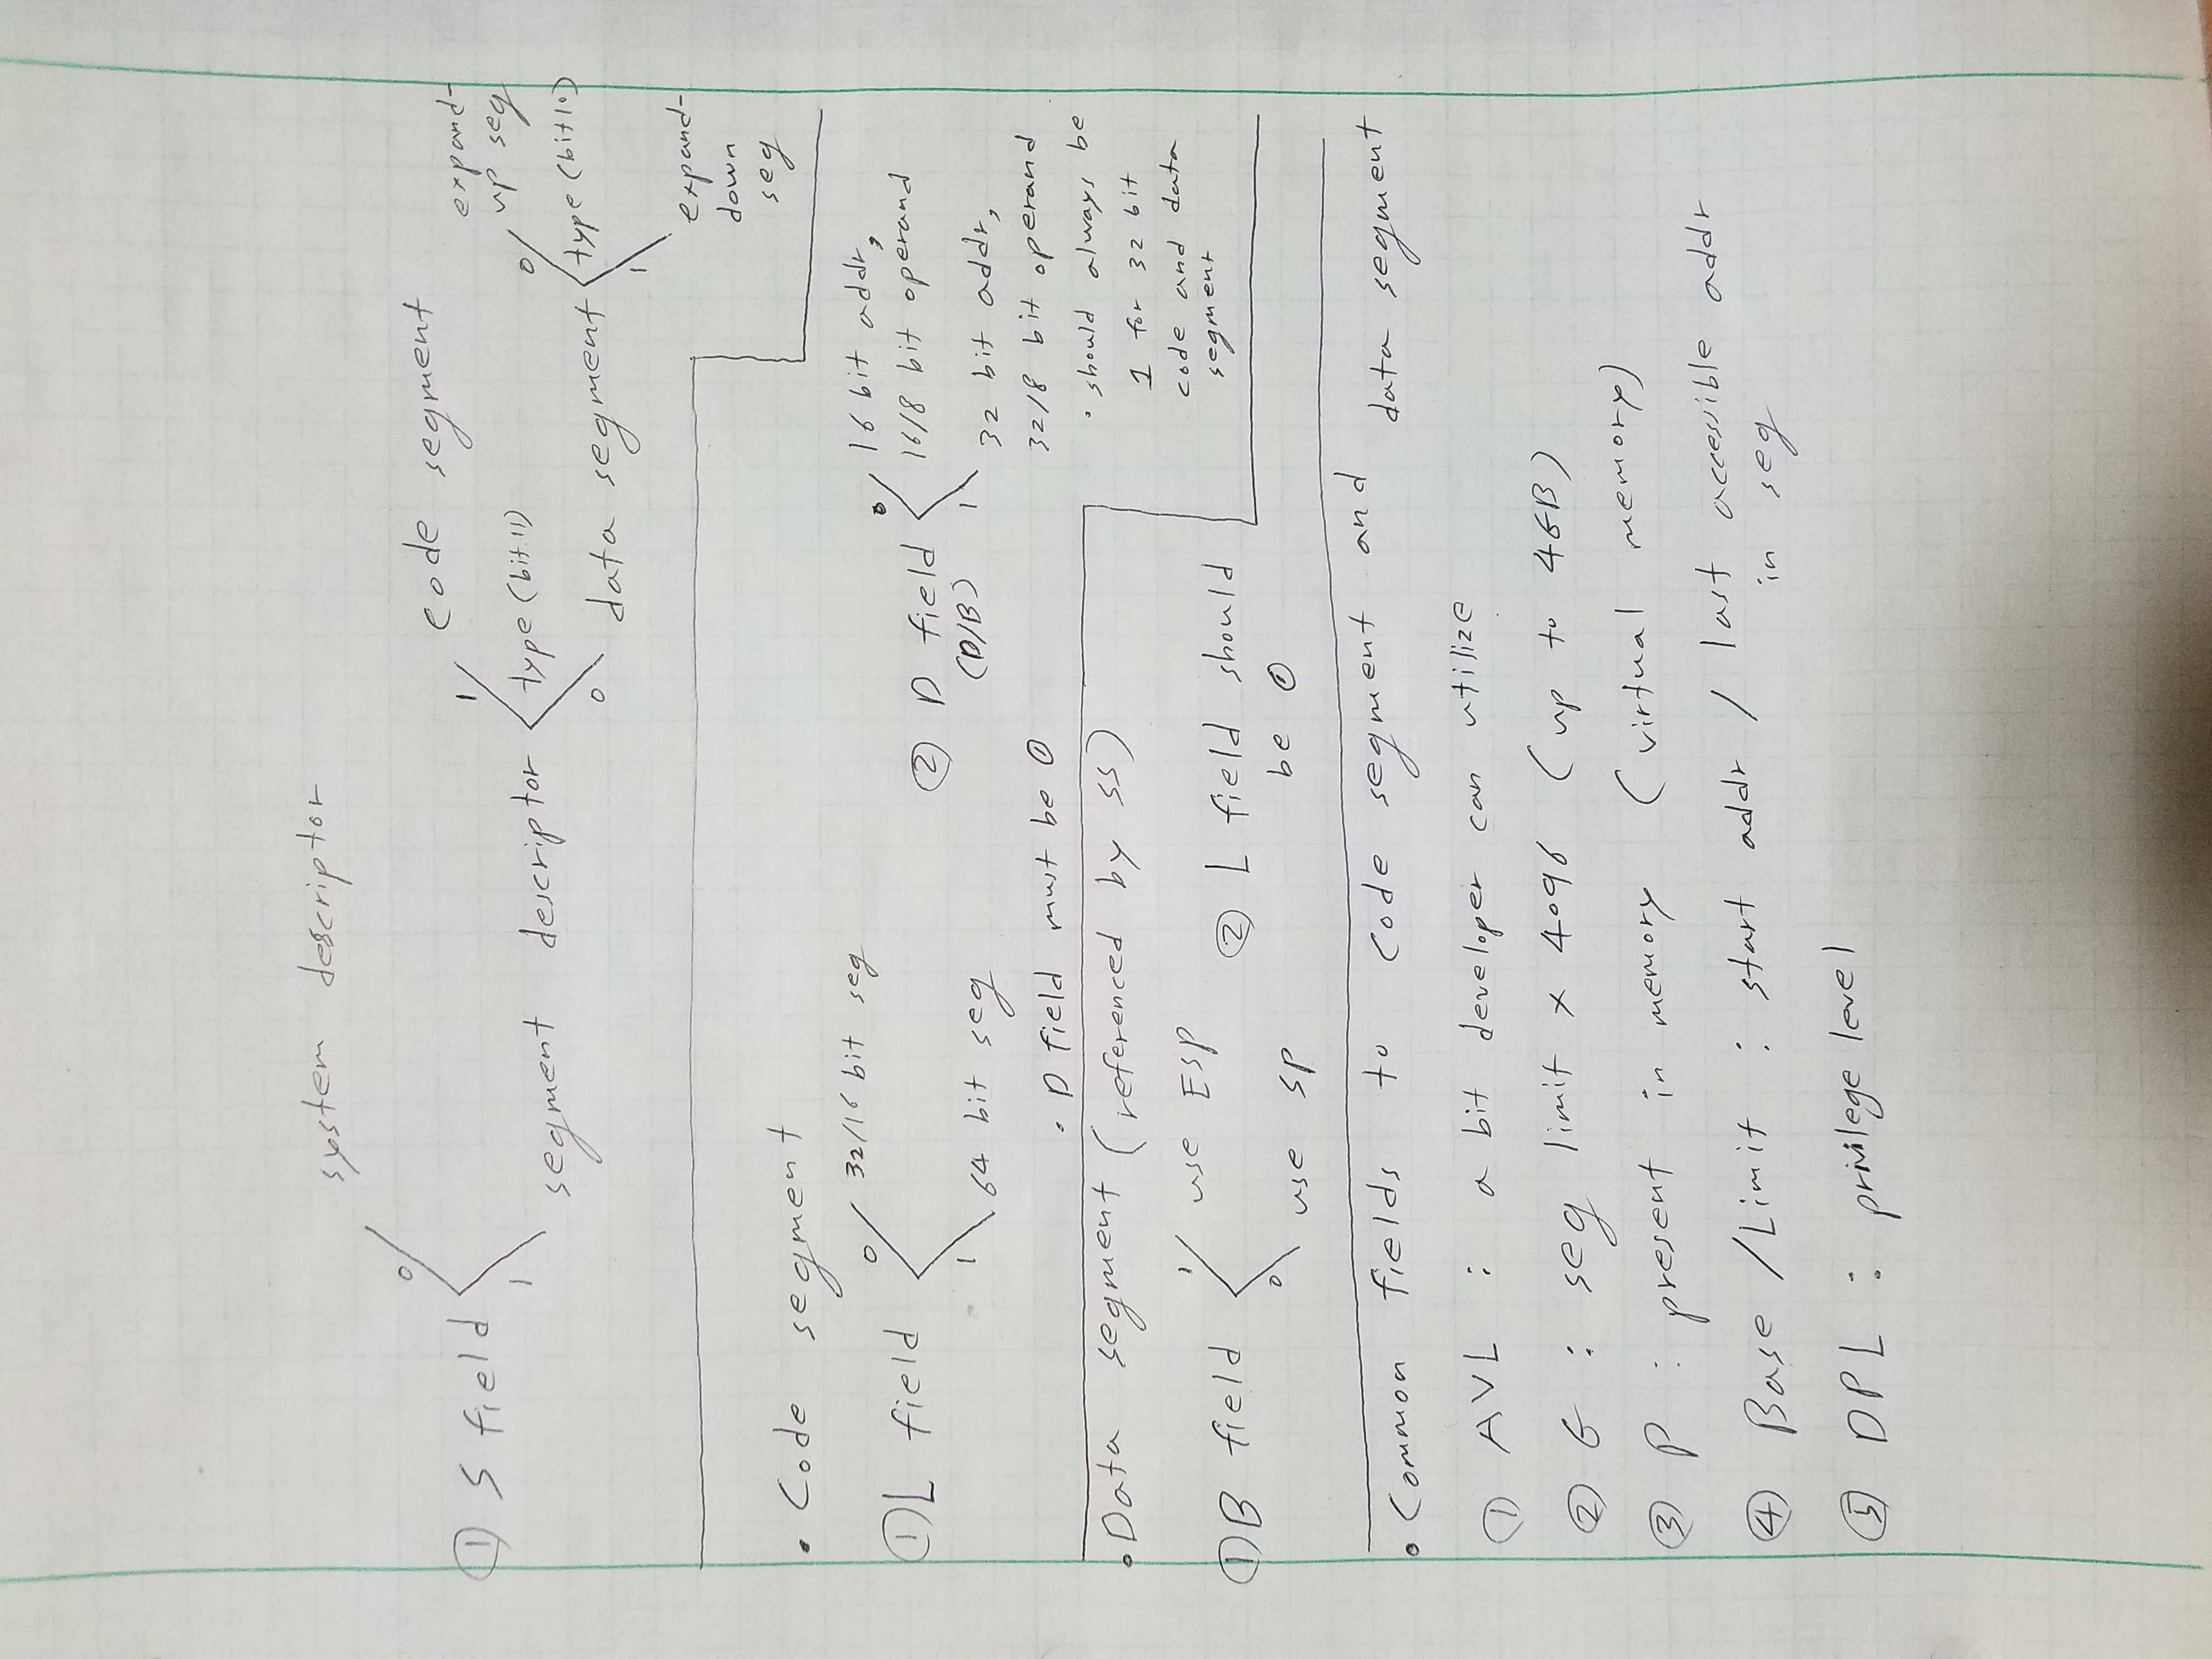 system descriptor
0
① S field
1
segment descriptor
1
code segment
type (bit 11)
0
data segment
0
expand-
up seg
type (bit 10)
1
expand-
down
seg
• Code segment
① L field
0
32/16 bit seg
1
64 bit seg
• D field must be 0
② D field
(D/B)
0
16 bit addr,
16/8 bit operand
1
32 bit addr,
32/8 bit operand
• should always be
1 for 32 bit
code and data
segment
• Data segment (referenced by ss)
① B field
1
use ESP
0
use SP
② L field should
be 0
• Common fields to code segment and data segment
① AVL : a bit developer can utilize
② G : seg limit x 4096 (up to 4GB)
③ P : present in memory (virtual memory)
④ Base / Limit : start addr / last accessible addr
in seg
⑤ DPL : privilege level